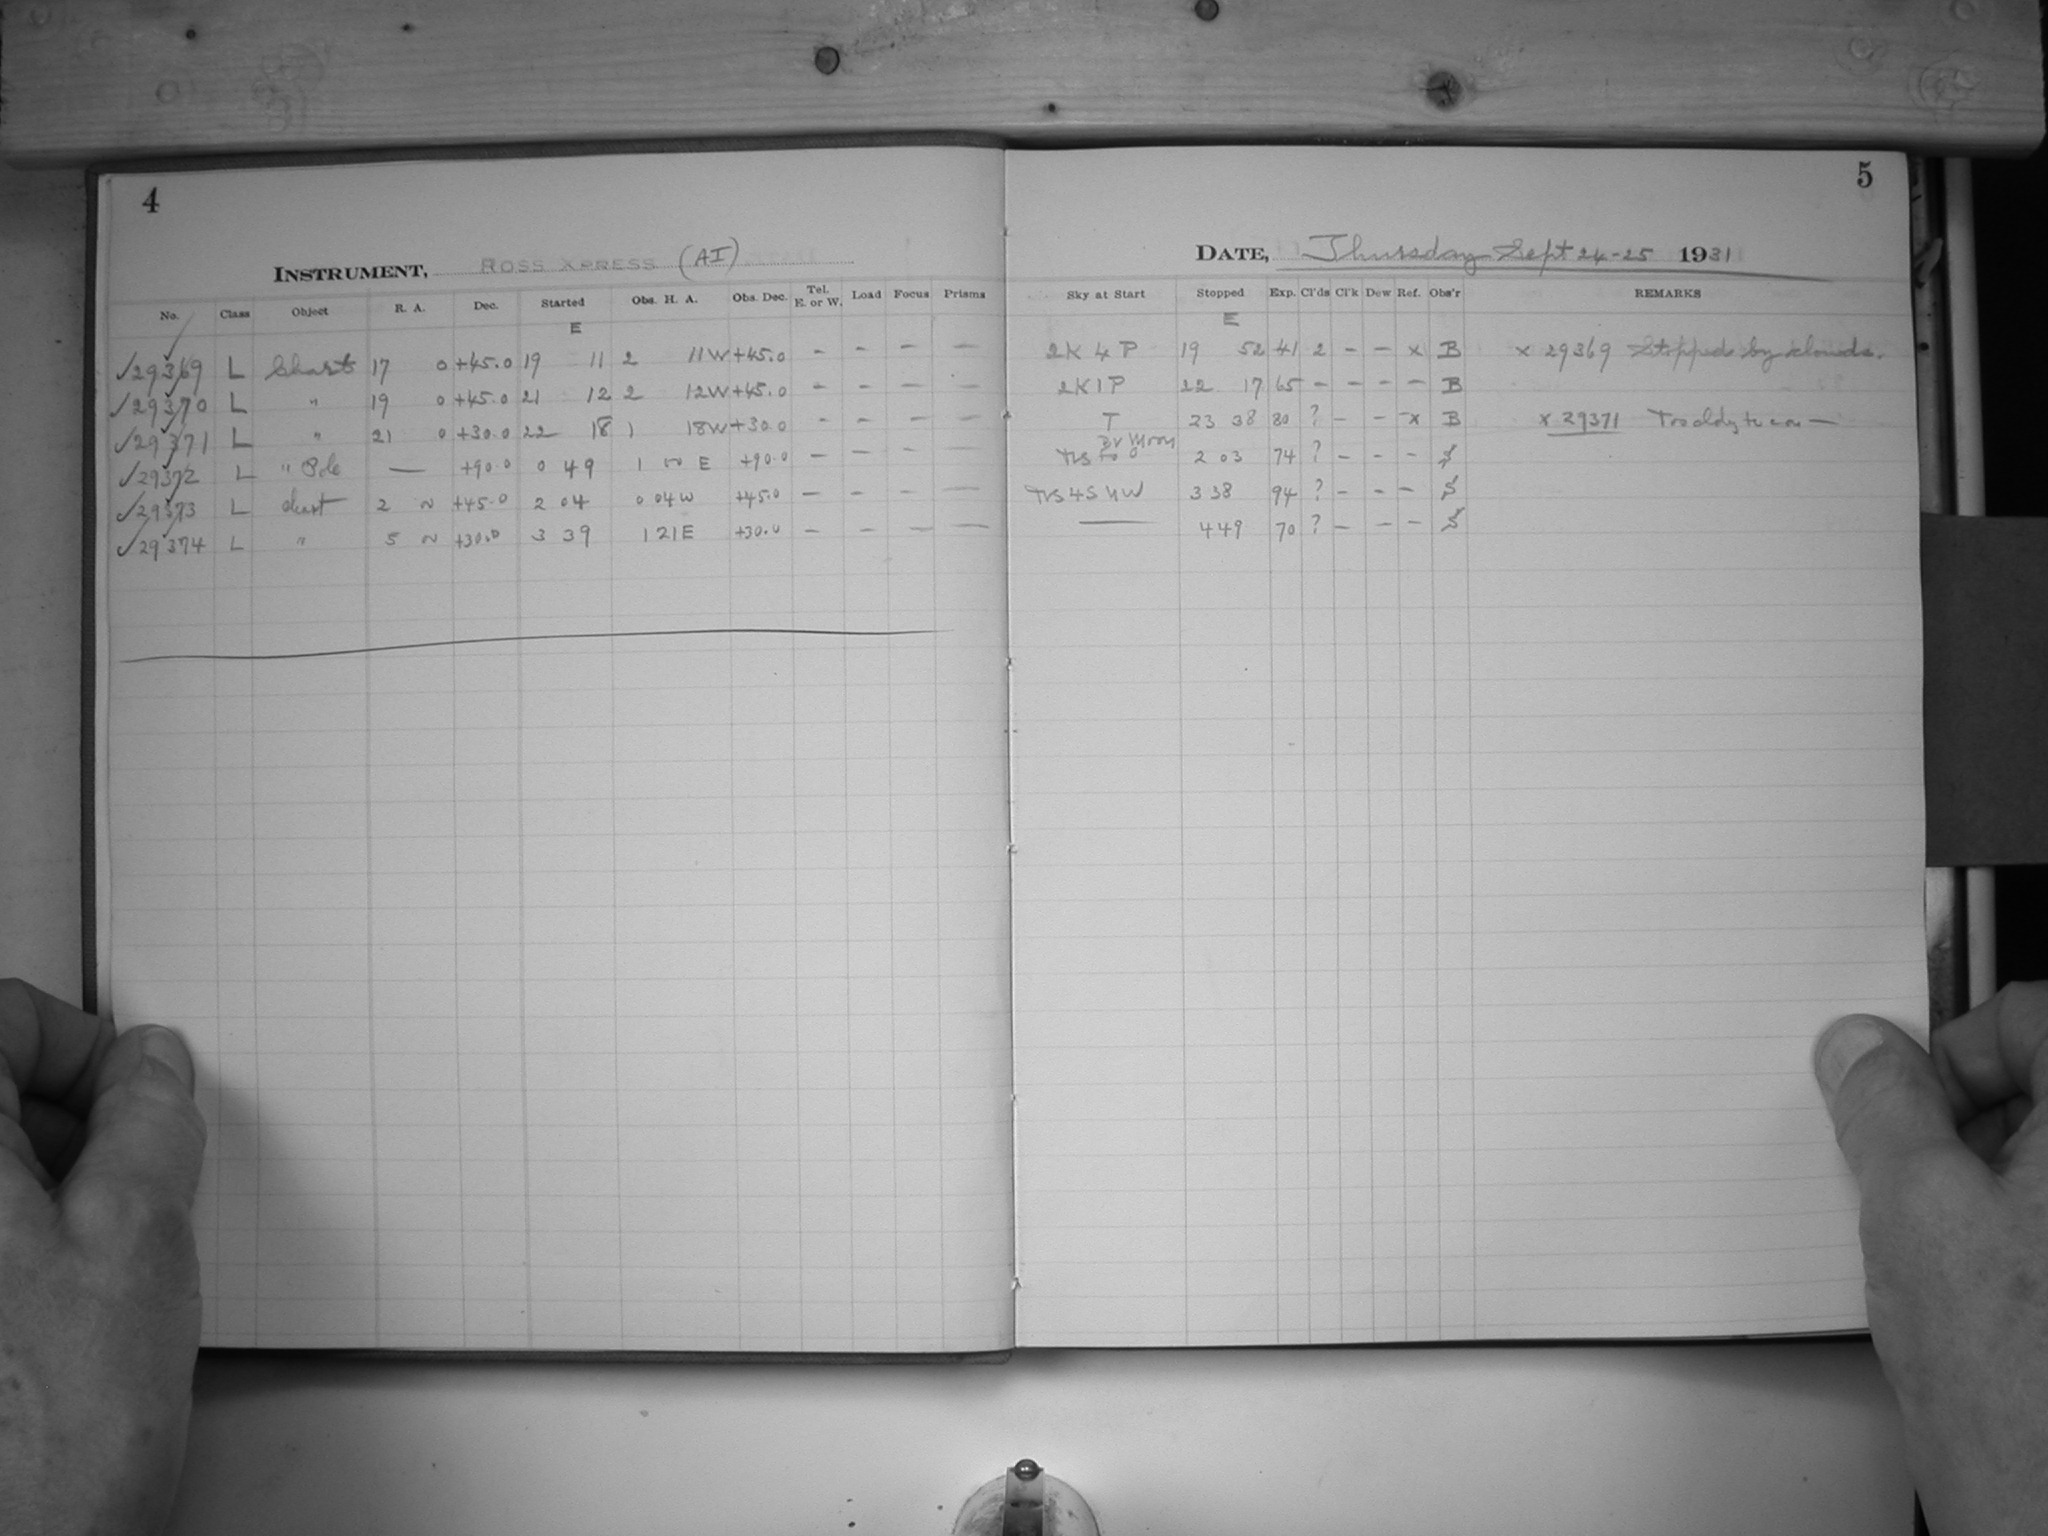 4
INSTRUMENT, ROSS XPRESS (AI)
No. Class Object R. A. Dec. Started Obs. H. A. Obs. Dec. Tel. E. or W. Load Focus Prisms
E
✓29369 L Charts 17 0 +45.0 19 11 2 11W +45.0 - - - -
✓29370 L " 19 0 +45.0 21 12 2 12W +45.0 - - - -
✓29371 L " 21 0 +30.0 22 18 1 18W +30.0 - - - -
✓29372 L " Pole — +90.0 0 49 1 00 E +90.0 - - - -
✓29373 L chart 2 ~ +45.0 2 04 0 04W +45.0 - - - -
✓29374 L " 5 ~ +30.0 3 39 1 21E +30.0 - - - -
5
DATE, Thursday Sept 24-25 1931
Sky at Start Stopped Exp. Cl'ds Cl'k Dew Ref. Obs'r REMARKS
E
2K 4 P 19 52 41 2 - - x B x 29369 Stopped by clouds.
2K1P 22 17 65 - - - - B
T 23 38 80 ? - - -x B x 29371 Too cldy to con—
Br Moon
2 03 74 ? - - - S
3 38 94 ? - - - S
— 4 49 70 ? - - - S